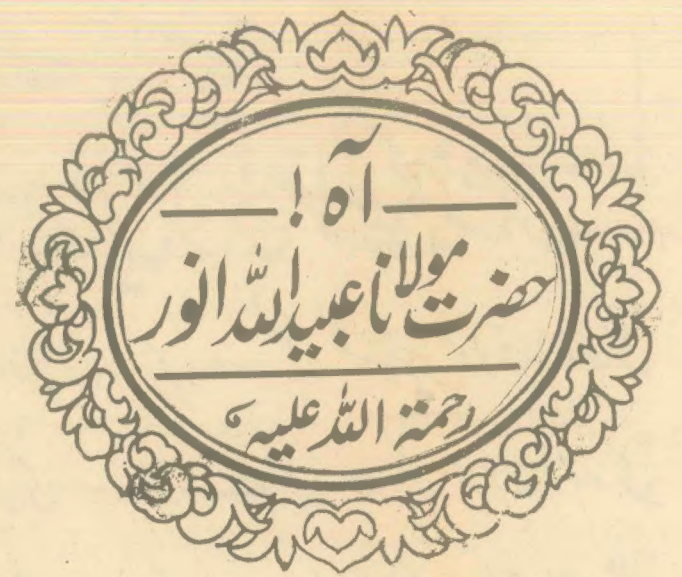 آہ !
حضرت مولانا عبیداللہ انور
رحمۃ اللہ علیہ